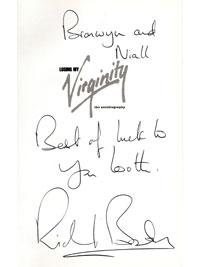 Bronwyn and
Niall
LOSING MY
Virginity
the autobiography
Best of luck to
you both.
Richard Branson